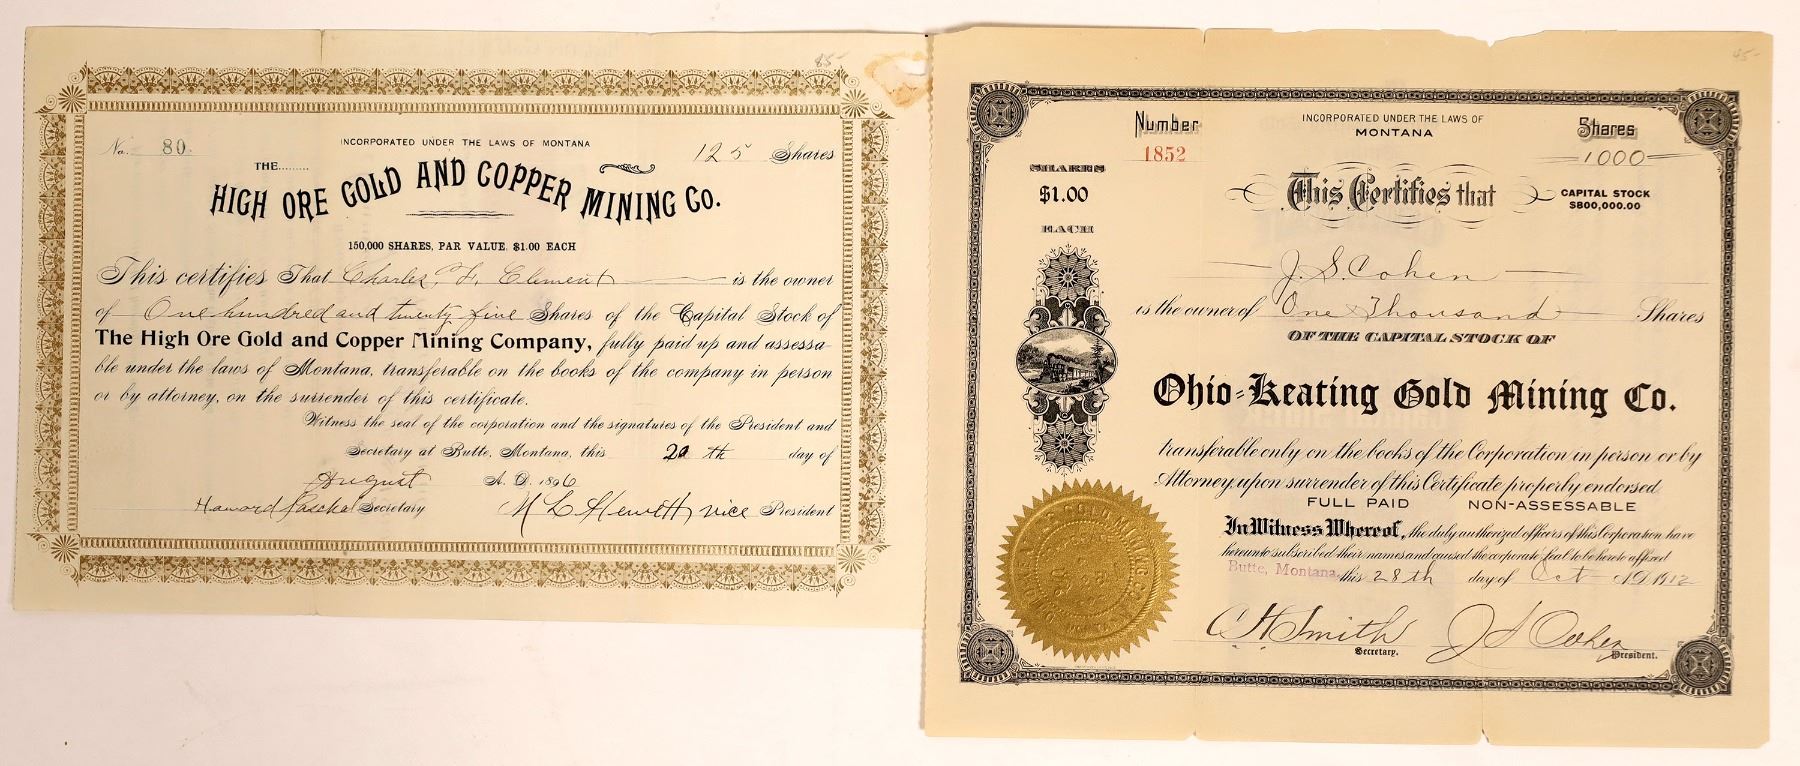 85-
No. 80.
INCORPORATED UNDER THE LAWS OF MONTANA
125 Shares
THE.........
HIGH ORE GOLD AND COPPER MINING CO.
150,000 SHARES, PAR VALUE $1.00 EACH
This certifies That Charles F. Clement is the owner
of One hundred and twenty five Shares of the Capital Stock of
The High Ore Gold and Copper Mining Company, fully paid up and assessa-
ble under the laws of Montana, transferable on the books of the company in person
or by attorney, on the surrender of this certificate.
Witness the seal of the corporation and the signatures of the President and
Secretary at Butte, Montana, this 20 th day of
August A. D. 1896
Secretary vice President
85-
Number
1852
INCORPORATED UNDER THE LAWS OF
MONTANA
Shares
1000
SHARES
$1.00
EACH
This Certifies that
CAPITAL STOCK
$800,000.00
J. S. Cohen
is the owner of One Thousand Shares
OF THE CAPITAL STOCK OF
Ohio-Keating Gold Mining Co.
transferable only on the books of the Corporation in person or by
Attorney, upon surrender of this Certificate properly endorsed.
FULL PAID NON-ASSESSABLE
In Witness Whereof, the duly authorized officers of this Corporation have
hereunto subscribed their names and caused the corporate Seal to be hereto affixed
Butte, Montana, this 28th day of Oct A.D. 1912
C H Smith J S Cohen
Secretary. President.